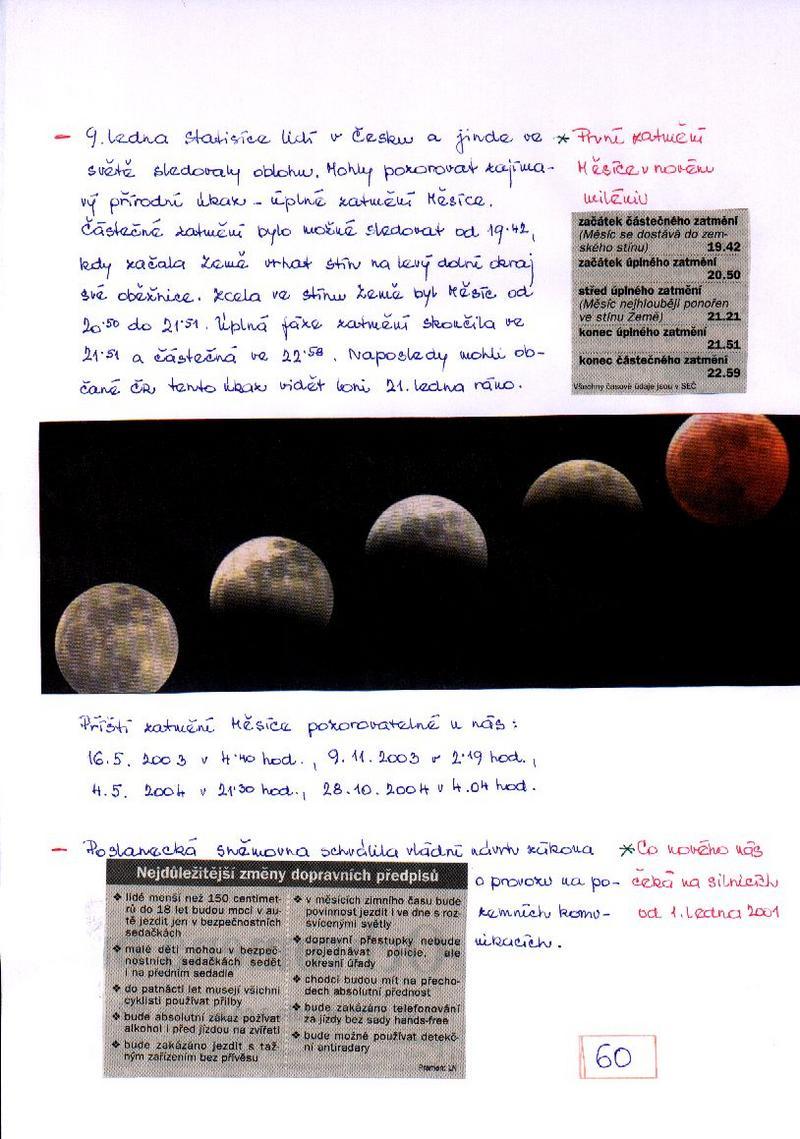 - 9. ledna statisíce lidí v Česku a jinde ve
světě sledovaly oblohu. Mohly pozorovat zajíma-
vý přírodní úkaz - úplné zatmění Měsíce.
Částečné zatmění bylo možné sledovat od 19.42,
kdy začala Země vrhat stín na levý dolní okraj
své oběžnice. Zcela ve stínu Země byl Měsíc od
20.50 do 21.51. Úplná fáze zatmění skončila ve
21.51 a částečná ve 22.58. Naposledy mohli ob-
čané ČR tento úkaz vidět loni 21. ledna ráno.
* První zatmění
Měsíce v novém
miléniu
začátek částečného zatmění
(Měsíc se dostává do zem-
ského stínu) 19.42
začátek úplného zatmění
20.50
střed úplného zatmění
(Měsíc nejhlouběji ponořen
ve stínu Země) 21.21
konec úplného zatmění
21.51
konec částečného zatmění
22.59
Všechny časové údaje jsou v SEČ
Příští zatmění Měsíce pozorovatelné u nás:
16.5. 2003 v 4.40 hod., 9.11.2003 v 2.19 hod.,
4.5. 2004 v 21.30 hod., 28.10.2004 v 4.04 hod.
- Poslanecká sněmovna schválila vládní návrh zákona
o provozu na po-
zemních komu-
nikacích.
* Co nového nás
čeká na silnicích
od 1. ledna 2001
Nejdůležitější změny dopravních předpisů
❖ lidé menší než 150 centimet-
rů do 18 let budou moci v au-
tě jezdit jen v bezpečnostních
sedačkách
❖ malé děti mohou v bezpeč-
nostních sedačkách sedět
i na předním sedadle
❖ do patnácti let musejí všichni
cyklisti používat přilby
❖ bude absolutní zákaz požívat
alkohol i před jízdou na zvířeti
❖ bude zakázáno jezdit s taž-
ným zařízením bez přívěsu
❖ v měsících zimního času bude
povinnost jezdit i ve dne s roz-
svícenými světly
❖ dopravní přestupky nebude
projednávat policie, ale
okresní úřady
❖ chodci budou mít na přecho-
dech absolutní přednost
❖ bude zakázáno telefonování
za jízdy bez sady hands-free
❖ bude možné používat detekč-
ní antiradary
Pramen: LN
60